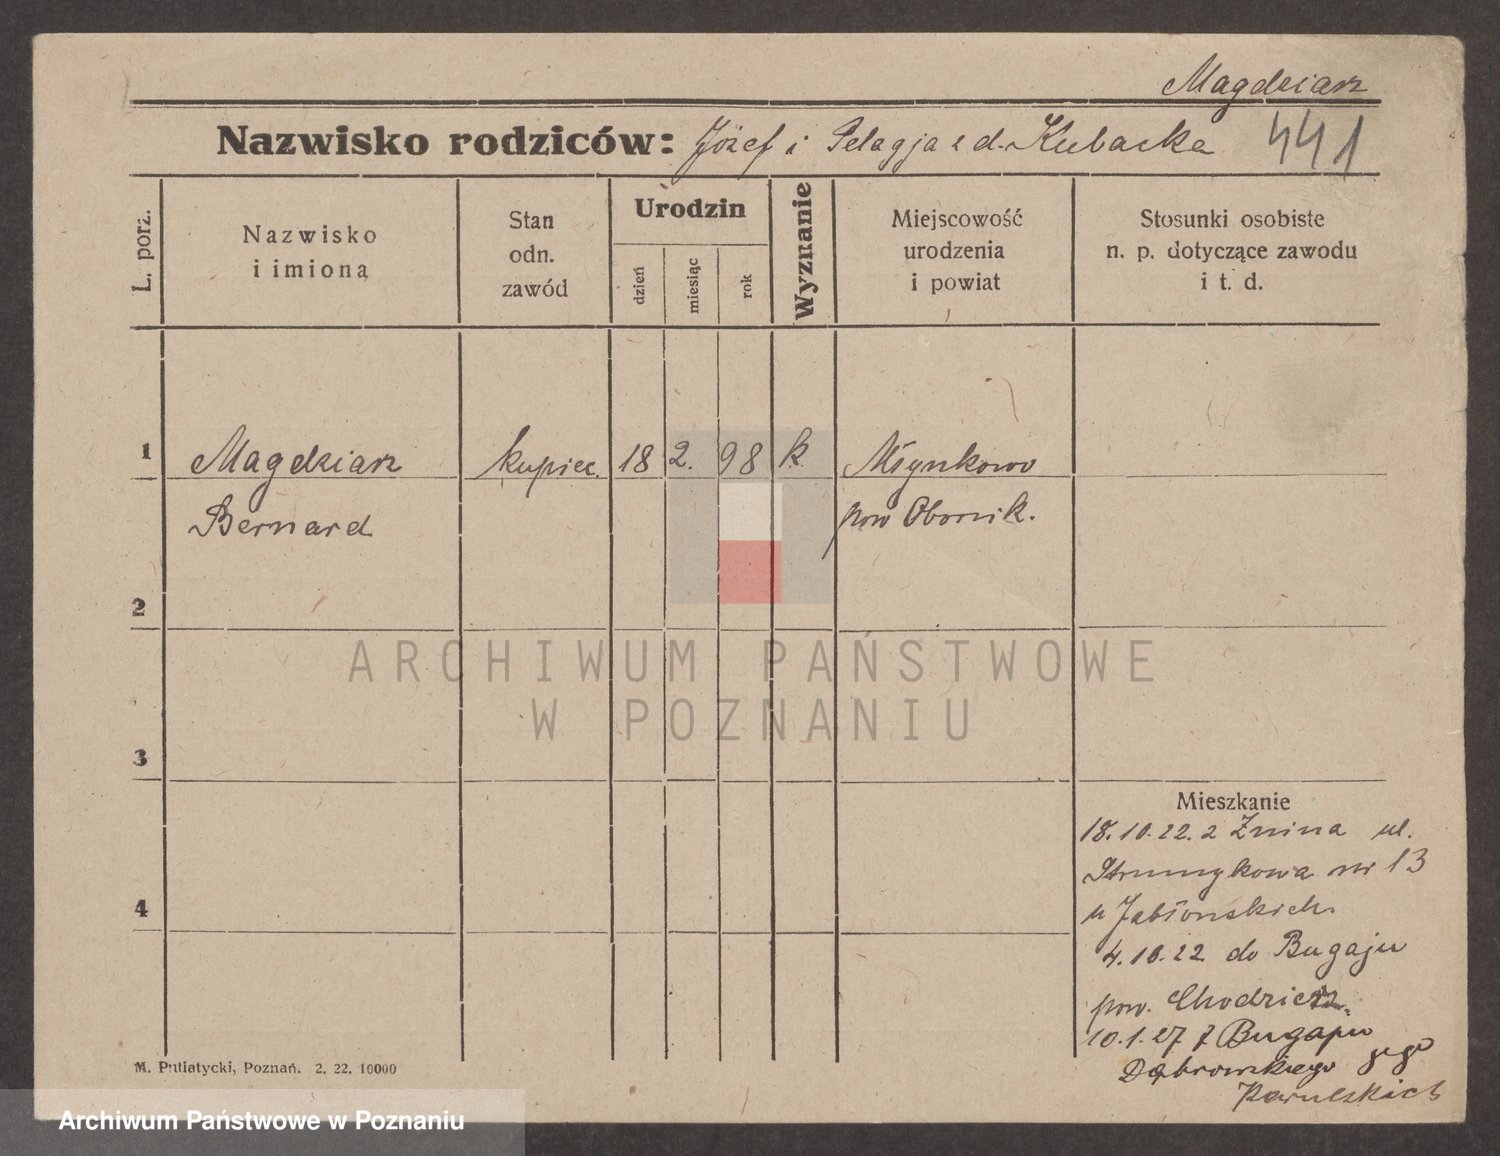 Magdziarz
Nazwisko rodziców: Józef i Pelagja z d. Kubacka 441
L. porz.
Nazwisko
i imiona
Stan
odn.
zawód
Urodzin
dzień
miesiąc
rok
Wyznanie
Miejscowość
urodzenia
i powiat
Stosunki osobiste
n. p. dotyczące zawodu
i t. d.
1 Magdziarz kupiec. 18 2. 98 k Młynkowo
Bernard pow Obornik.
2
ARCHIWUM PAŃSTWOWE
W POZNANIU
3
Mieszkanie
18.10.22. z Żnina ul.
Strumykowa nr 13
u Jabłonskich.
4
4.10.22 do Bugaju
pow. Chodzież.
10.1.27 z Bugaju
Dąbrowskiego
M. Putiatycki, Poznań. 2, 22, 10000
Archiwum Państwowe w Poznaniu